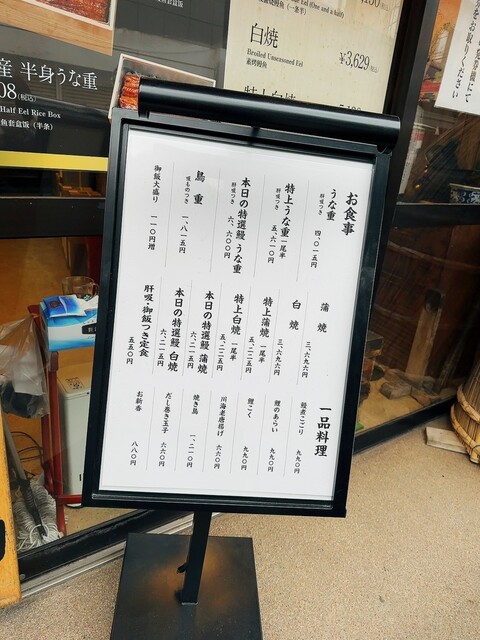 白焼
Broiled Unseasoned Eel
素烤鳗鱼
¥3,629
半身うな重
Half Eel Rice Box
鱼套盒饭（半条）
お食事
うな重 四、〇一五円
肝吸つき
特上うな重 一尾半 五、六一〇円
肝吸つき
本日の特選鰻 うな重 六、六〇〇円
肝吸つき
鳥重 一、八一五円
吸ものつき
御飯大盛り 一一〇円増
蒲焼 三、六九六円
白焼 三、六九六円
特上蒲焼 一尾半 五、二二五円
特上白焼 一尾半 五、二二五円
本日の特選鰻 蒲焼 六、二一五円
本日の特選鰻 白焼 六、二一五円
肝吸・御飯つき定食 五五〇円
一品料理
鰻煮こごり 九九〇円
鯉のあらい 九九〇円
鯉こく 九九〇円
川海老唐揚げ 六六〇円
焼き鳥 一、二一〇円
だし巻き玉子 六六〇円
お新香 八八〇円